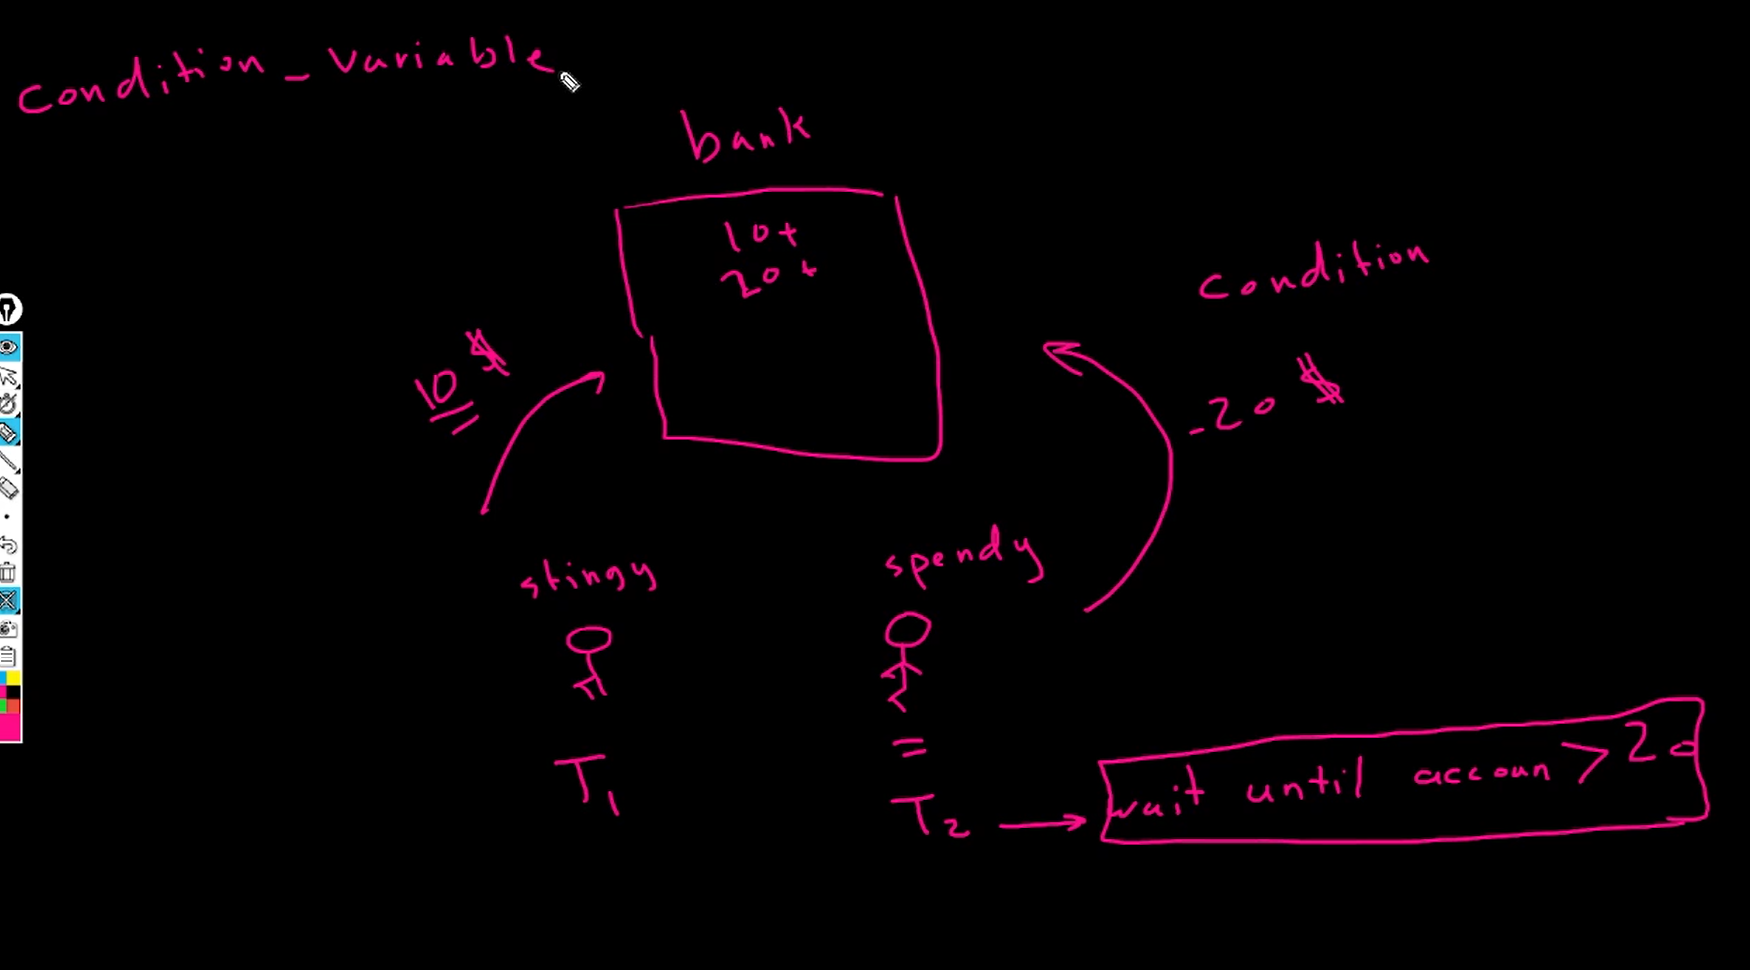 Condition_Variable
bank
10+
20+
Condition
10 $
-20 $
stingy
spendy
=
T1
T2
wait until accoun > 20